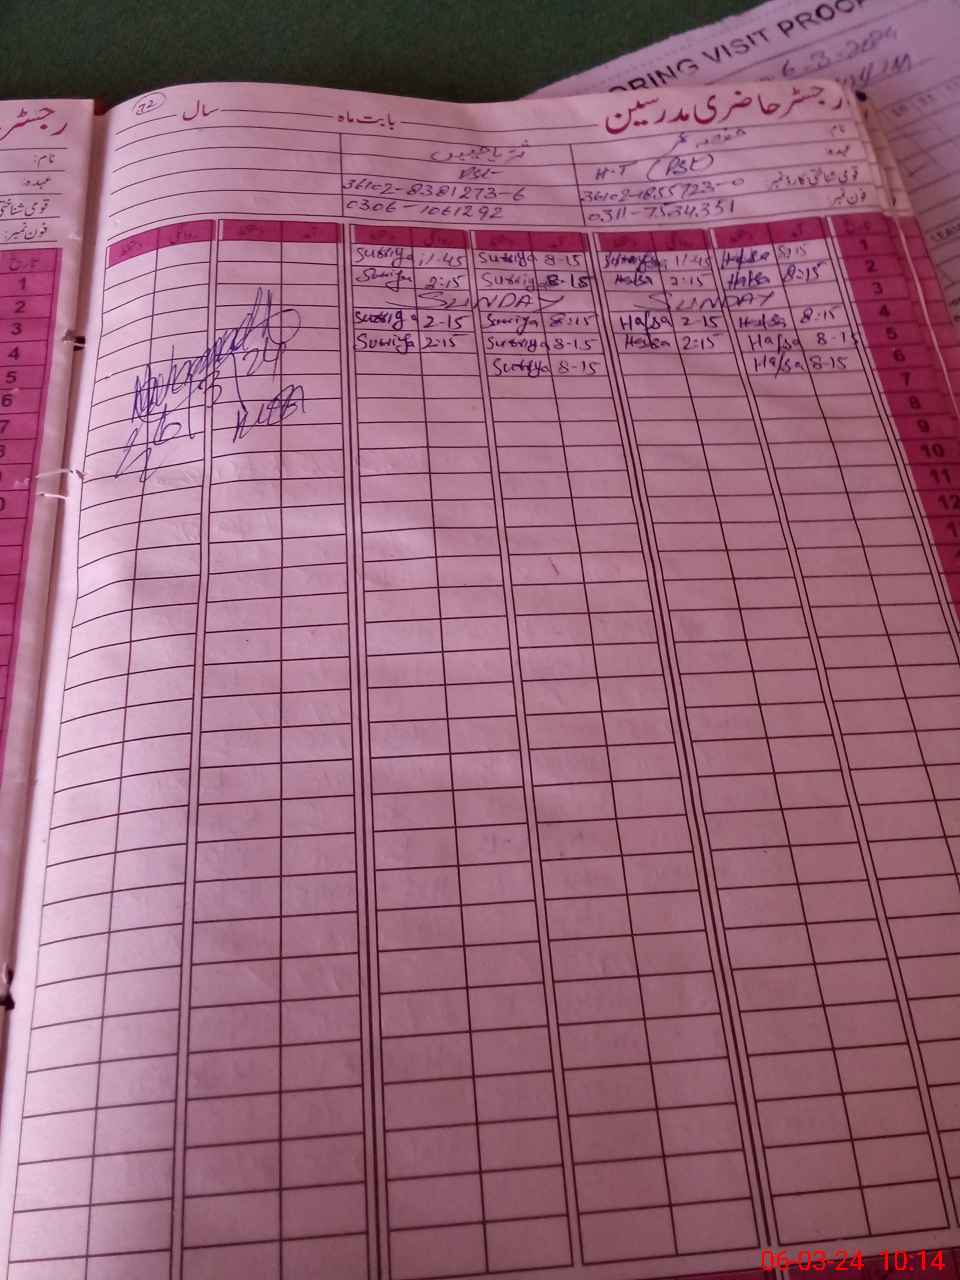 RING VISIT PROOF
6-3-2024
32
رجسٹر حاضری مدرسین
بابت ماہ
سال
نام
عہدہ
H-T (PST)
PST
قومی شناختی کارڈ نمبر
36102-1855723-0
36102-8381273-6
فون نمبر:
0311-7534351
0306-1061292
تاریخ
1 8:15 11-45 Surriya 8-15 Surriya 11-45
2 Hafsa 8:15 Hafsa 2:15 Surriya 8-15 Surriya 2:15
3 SUNDAY SUNDAY
4 Hafsa 8-15 Hafsa 2-15 Surriya 8:15 Surriya 2-15
5 Hafsa 8-15 Hafsa 2:15 Surriya 8-15 Surriya 2:15
6 Hafsa 8-15 Surriya 8-15
7
8
9
10
11
12
رجسٹر
نام:
عہدہ:
قومی شناختی
فون نمبر:
تاریخ
1
2
3
4
5
6
7
06-03-24 10:14